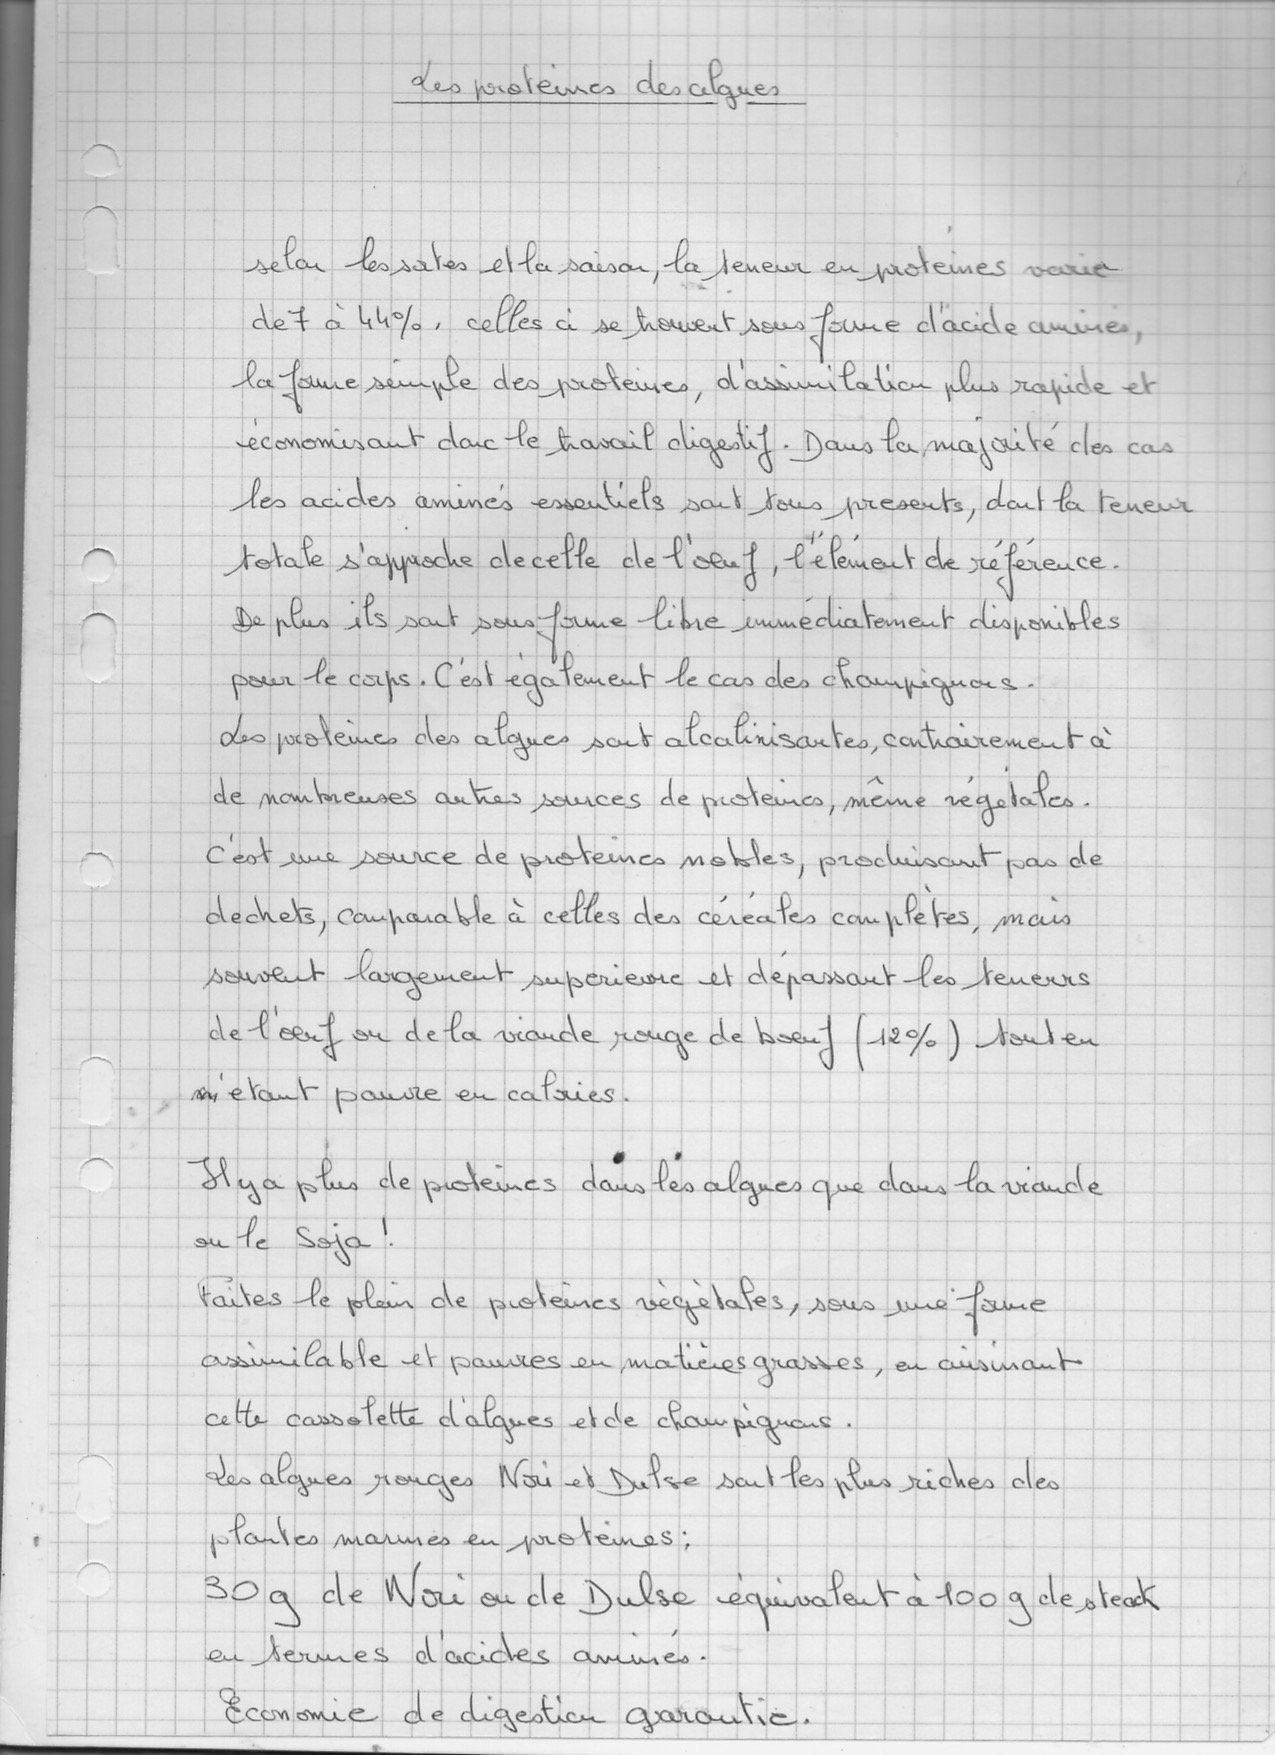 Les proteines des algues
selon les sortes et la saison, la teneur en proteines varie
de 7 à 44%. celles ci se trouvent sous forme d'acide aminés,
la forme simple des proteines, d'assimilation plus rapide et
économisant donc le travail digestif. Dans la majorité des cas
les acides aminés essentiels sont tous presents, dont la teneur
totale s'approche de celle de l'oeuf, l'élément de référence.
De plus ils sont sous forme libre immédiatement disponibles
pour le corps. C'est également le cas des champignons.
Les proteines des algues sont alcalinisantes, contrairement à
de nombreuses autres sources de proteines, même végétales.
C'est une source de proteines nobles, produisant pas de
dechets, comparable à celles des céréales complètes, mais
souvent largement superieure et dépassant les teneurs
de l'oeuf ou de la viande rouge de boeuf (12%) tout en
n'etant pauvre en calories.
Il y a plus de proteines dans les algues que dans la viande
ou le Soja !
Faites le plein de proteines végètales, sous une forme
assimilable et pauvres en matières grasses, en cuisinant
cette cassolette d'algues et de champignons.
Les algues rouges Nori et Dulse sont les plus riches des
plantes marines en protéines ;
30 g de Nori ou de Dulse équivalent à 100 g de steack
en termes d'acides aminés.
Economie de digestion garantie.